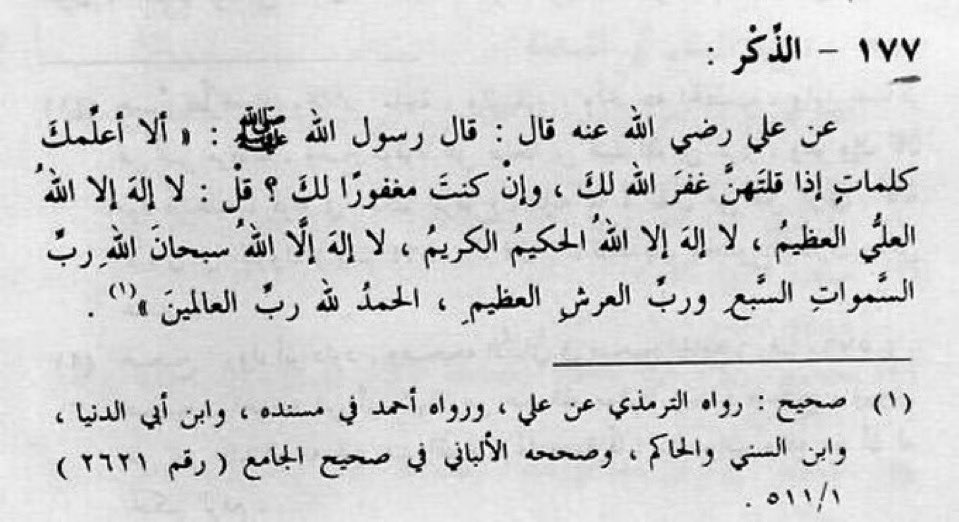 ١٧٧ - الذِّكْر :
عن علي رضي الله عنه قال : قال رسول الله ﷺ : « ألا أعلِّمكَ
كلماتٍ إذا قلتَهنَّ غفرَ الله لكَ ، وإنْ كنتَ مغفورًا لكَ ؟ قلْ : لا إلهَ إلا اللهُ
العليُّ العظيمُ ، لا إلهَ إلا اللهُ الحكيمُ الكريمُ ، لا إلهَ إلَّا اللهُ سبحانَ اللهِ ربِّ
السَّمواتِ السَّبعِ وربِّ العرشِ العظيمِ ، الحمدُ لله ربِّ العالمينَ »(١) .
(١) صحيح : رواه الترمذي عن علي ، ورواه أحمد في مسنده ، وابن أبي الدنيا ،
وابن السني والحاكم ، وصححه الألباني في صحيح الجامع ( رقم ٢٦٢١ )
٥١١/١ .